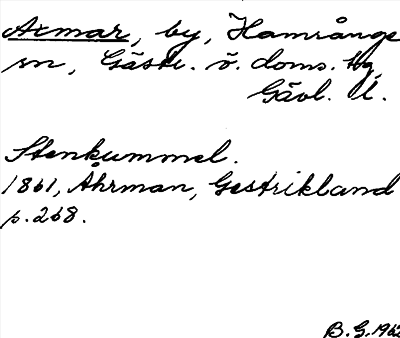 Axmar, by, Hamrånge
sn, Gästr. ö. doms. tg,
Gävl. l.
Stenkummel.
1861, Åhrman, Gestrikland
p. 268.
B.G. 1962